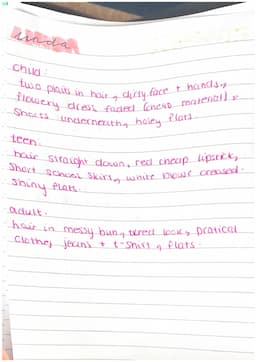 Linda
Child:
two plaits in hair, dirty face + hands,
flowery dress faded (neso material),
shorts underneath, holey flats.
teen:
hair straight down, red cheap lipstick,
short school skirt, white blouse creased.
shiny flats.
adult.
hair in messy bun, tired look, pratical
clothes, jeans + t-shirt, flats.